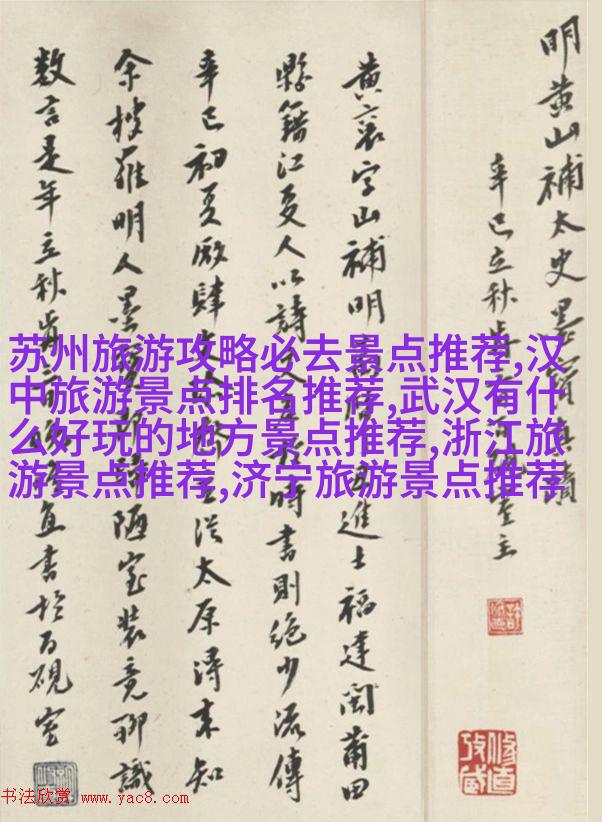 明黄山補太史墨
辛巳立秋 主
黄襄字山補明 進士福建閩莆田
縣籍江夏人以詩 時書則絶少流傳
辛巳初夏廠肆 太原 来知
余 明人墨 陋室装竟聊識
数言是年立秋 書於百硯室
苏州旅游攻略必去景点推荐,汉
中旅游景点排名推荐,武汉有什
么好玩的地方景点推荐,浙江旅
游景点推荐,济宁旅游景点推荐
书法欣赏 www.yac8.com